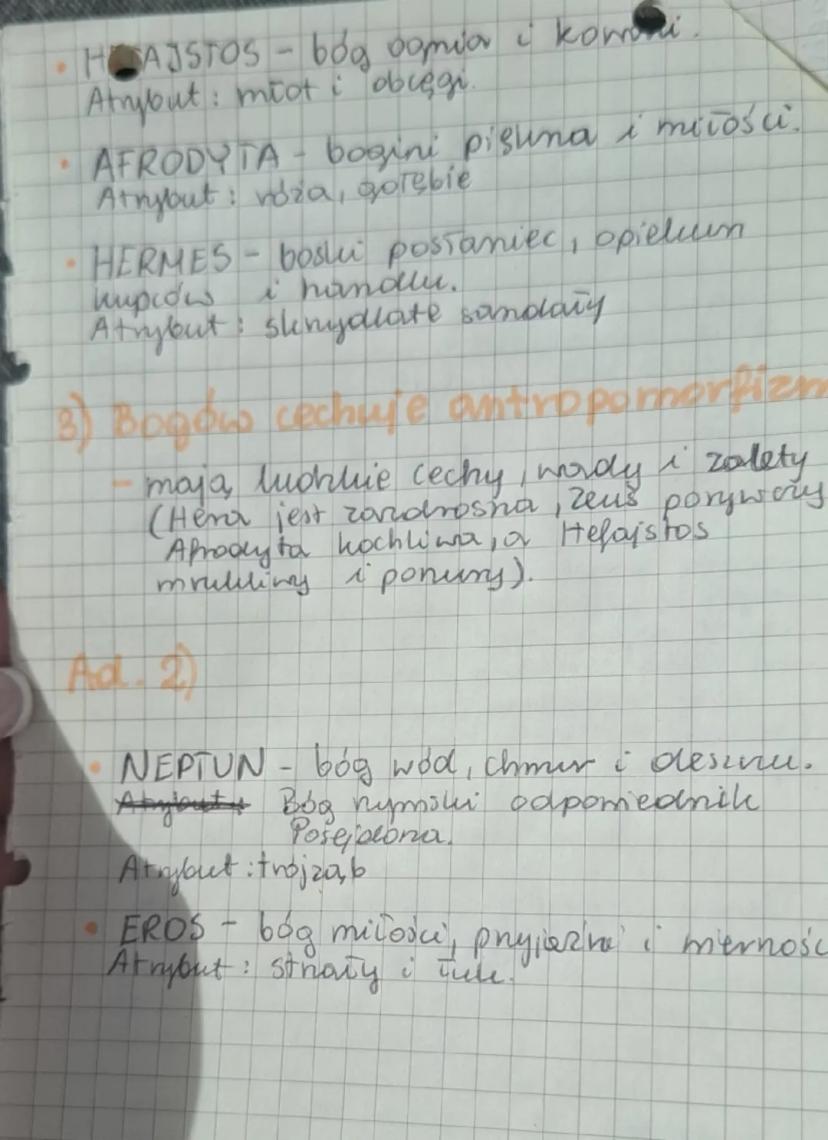 • HEFAJSTOS - bóg ognia i kowali.
Atrybut: młot i obcęgi.
• AFRODYTA - bogini piękna i miłości.
Atrybut: róża, gołębie
• HERMES - boski posłaniec, opiekun
kupców i handlu.
Atrybut: skrzydlate sandały
3) Bogów cechuje antropomorfizm
- mają ludzkie cechy, wady i zalety
(Hera jest zazdrosna, Zeus porywczy
Afrodyta kochliwa, a Hefajstos
mrukliwy i ponury).
Ad. 2)
• NEPTUN - bóg wód, chmur i deszczu.
Atrybut: Bóg rzymski odpowiednik
Posejdona.
Atrybut: trójząb
• EROS - bóg miłości, przyjaźni i wiernośc
Atrybut: strzały i łuk.